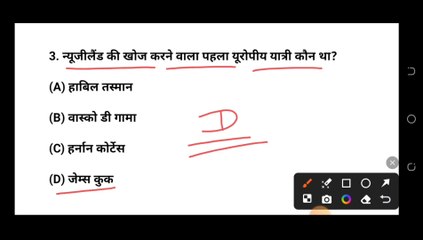 3. न्यूजीलैंड की खोज करने वाला पहला यूरोपीय यात्री कौन था?
(A) हाबिल तस्मान
(B) वास्को डी गामा
D
(C) हर्नान कोर्टेस
(D) जेम्स कुक